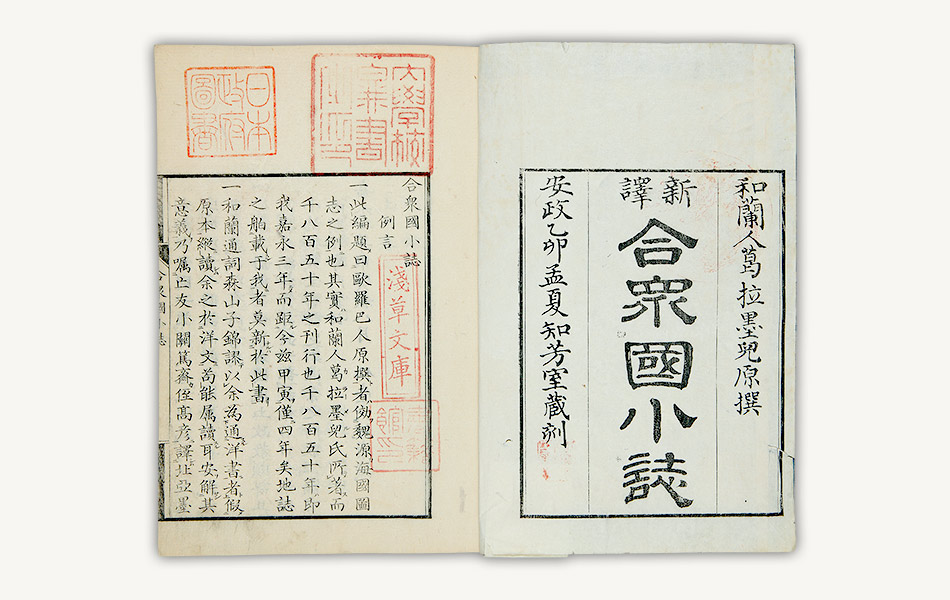 和蘭人葛拉墨兒原撰
新譯
合衆國小誌
安政乙卯孟夏知芳室蔵刻
大學校
圖書
之印
日本
政府
圖書
合衆國小誌
例言
淺草文庫
一此編題曰歐羅巴人原撰者倣魏源海國圖
志之例也其實和蘭人葛拉墨兒氏所著而
千八百五十年之刊行也千八百五十年即
我嘉永三年而距今茲甲寅僅四年矣地誌
之舶載于我者莫新於此書
一和蘭通詞森山子錦謬以余為通洋書者假
原本縱讀余之於洋文尚能属讀耳安解其
意義乃嘱亡友小關篤齋侄高彦譯址亞墨
合衆國小誌